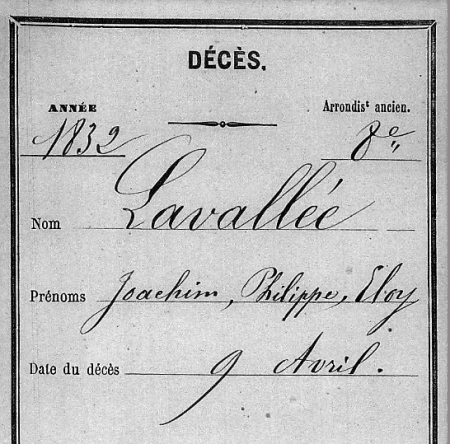 DÉCÈS.
ANNÉE Arrondist ancien.
1832 8e
Nom Lavallée
Prénoms Joachim, Philippe, Eloy
Date du décès 9 Avril.